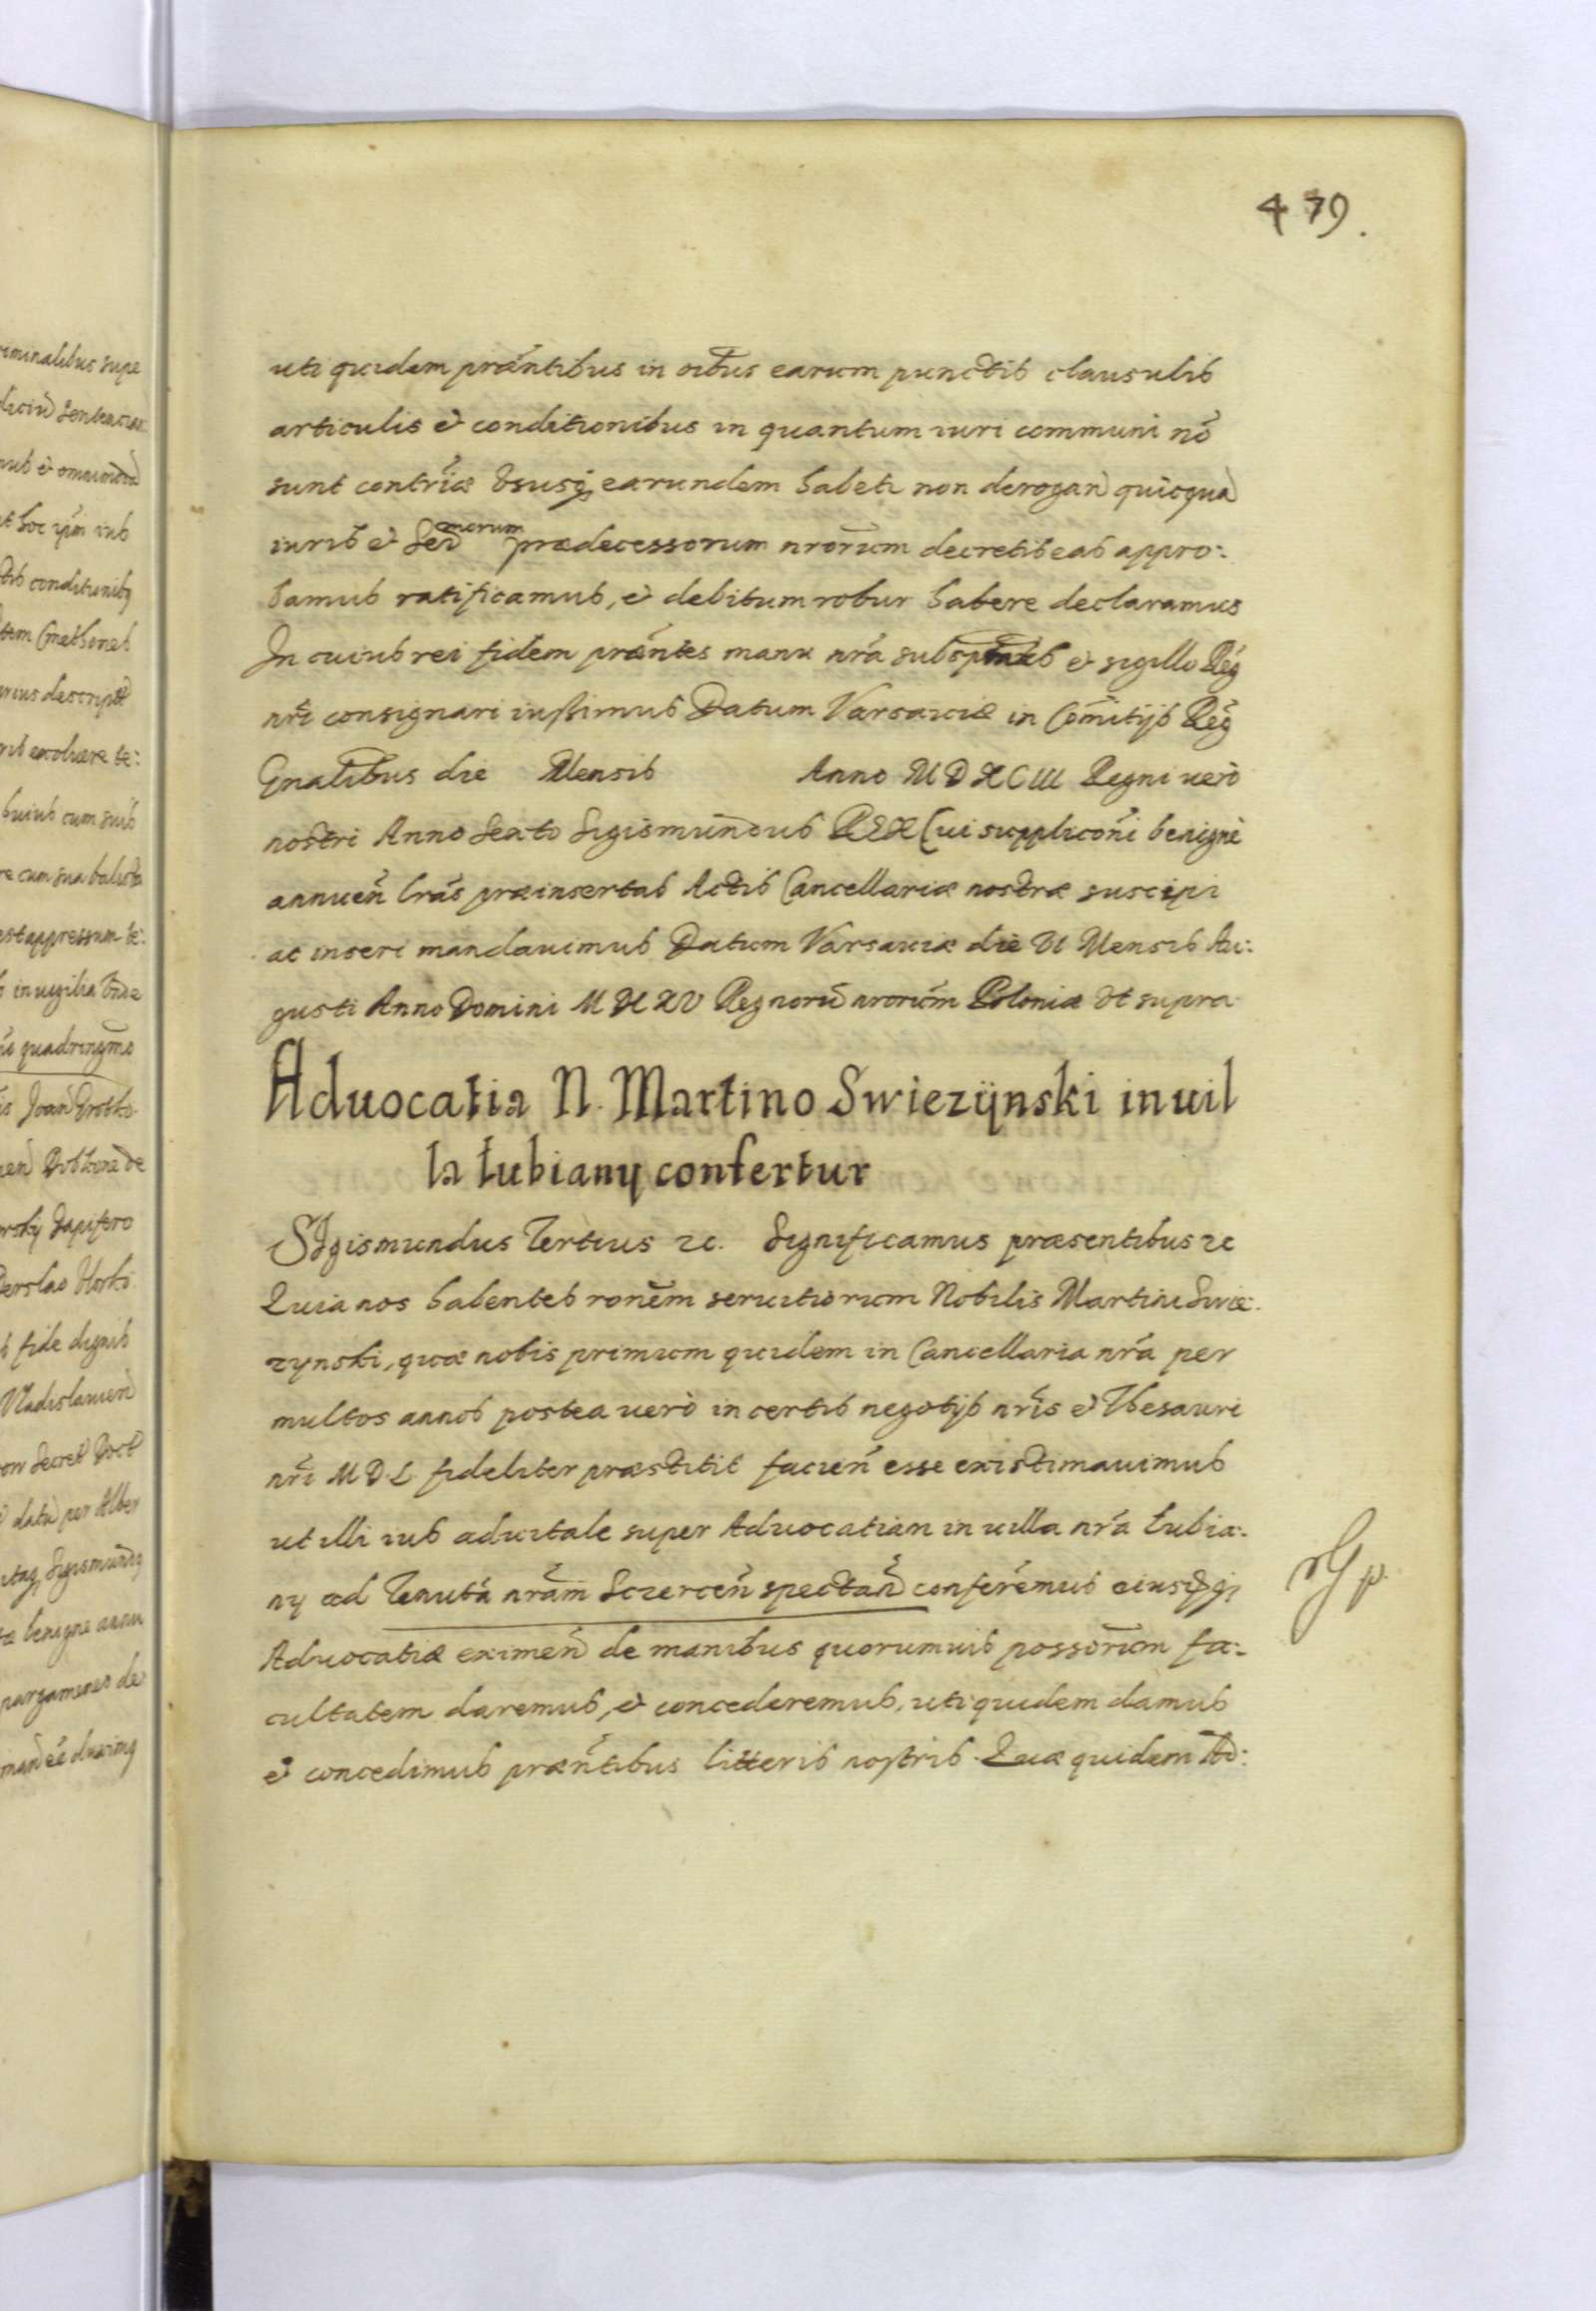 479.
uti quidem prǽntibus in oībus earum punctis clausulis
articulis et conditionibus in quantum iuri communi nō
sunt contrīæ Vsusq earundem habetr non derogan quicquā
iuris et Ser morum prædecessorum nrorum decretis eas appro:
bamus ratificamus, et debitum robur habere declaramus
In cuius rei fidem præntes manu nrā et sigillo Reg
nrī consignari iussimus Datum Varsauiæ in Comitijs Reg
Gnalibus die Mensis Anno MDXCIII Regni uerò
nostri Anno Sexto Sigismundus REX Cui supplicōni benignè
annuen lrās præinsertas Actis Cancellariæ nostræ suscipi
ac inseri mandauimus Datum Varsauiæ die VI Mensis Au:
gusti Anno Domini Regnorū nrorum Poloniæ Vt supra
Aduocatia N. Martino Swiezÿnski in uil
la Łubiany confertur
SIgismundus Tertius &c. Significamus præsentibus &c
Quia nos habentes ronem seruitiorum Nobilis Martini Swie:
zynski, quæ nobis primum quidem in Cancellaria nrā per
multos annos postea uerò in certis negotijs nrīs et Thesauri
nrī M D L fideliter præstitit facien esse existimauimus
ut illi ius aduitale super Aduocatiam in uilla nrā Łubia:
ny ad Tenutā nrām Sczercen spectan conferemus eiusqq
Aduocatiæ eximen de manibus quorumuis possorum fa:
cultatem daremus, et concederemus, uti quidem damus
et concedimus præntibus litteris nostris. Quæ quidem Ad: